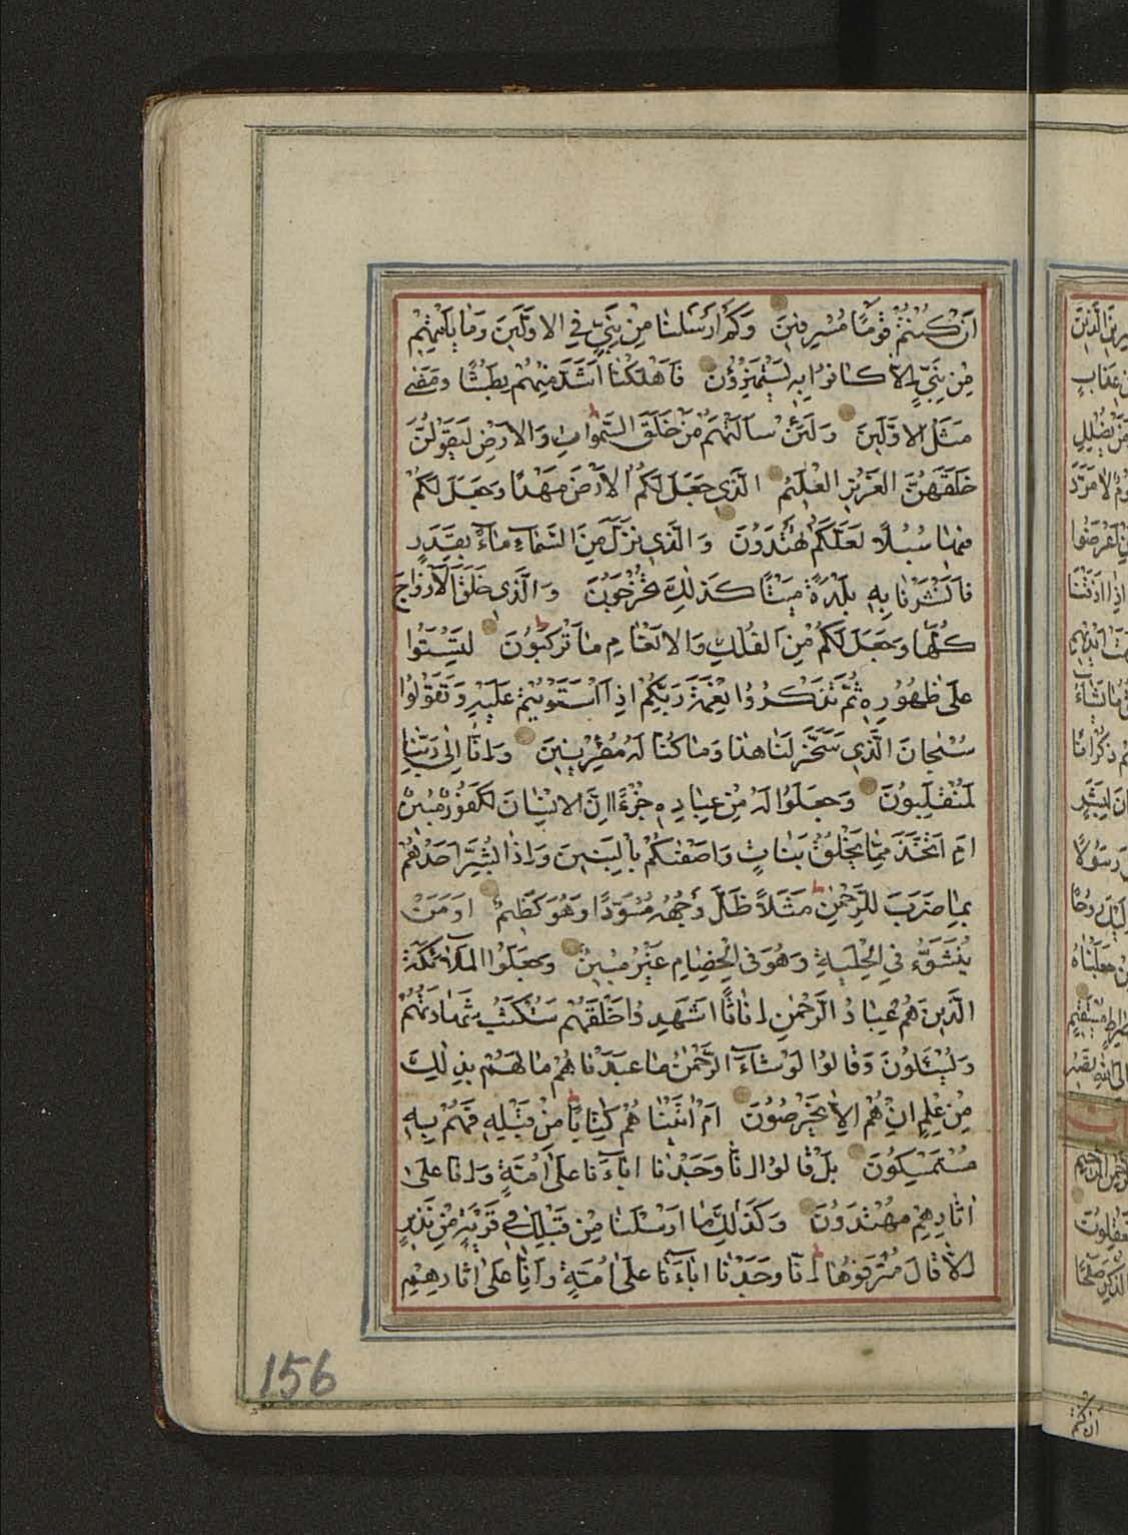 اَنْ كُنْتُمْ قَوْمًا مُسْرِفِينَ وَكَمْ اَرْسَلْنَا مِنْ نَبِيٍّ فِي الاَوَّلِينَ وَمَا يَاْتِيهِمْ
مِنْ نَبِيٍّ اِلَّا كَانُوا بِهِ يَسْتَهْزِؤُنَ فَاَهْلَكْنَا اَشَدَّ مِنْهُمْ بَطْشًا وَمَضٰى
مَثَلُ الاَوَّلِينَ وَلَئِنْ سَاَلْتَهُمْ مَنْ خَلَقَ السَّمٰوَاتِ وَالاَرْضَ لَيَقُولُنَّ
خَلَقَهُنَّ الْعَزِيزُ الْعَلِيمُ الَّذِي جَعَلَ لَكُمُ الاَرْضَ مَهْدًا وَجَعَلَ لَكُمْ
فِيهَا سُبُلًا لَعَلَّكُمْ تَهْتَدُونَ وَالَّذِي نَزَّلَ مِنَ السَّمَاءِ مَاءً بِقَدَرٍ
فَاَنْشَرْنَا بِهِ بَلْدَةً مَيْتًا كَذٰلِكَ تُخْرَجُونَ وَالَّذِي خَلَقَ الاَزْوَاجَ
كُلَّهَا وَجَعَلَ لَكُمْ مِنَ الْفُلْكِ وَالاَنْعَامِ مَا تَرْكَبُونَ لِتَسْتَوُا
عَلٰى ظُهُورِهِ ثُمَّ تَذْكُرُوا نِعْمَةَ رَبِّكُمْ اِذَا اسْتَوَيْتُمْ عَلَيْهِ وَتَقُولُوا
سُبْحَانَ الَّذِي سَخَّرَ لَنَا هٰذَا وَمَا كُنَّا لَهُ مُقْرِنِينَ وَاِنَّا اِلٰى رَبِّنَا
لَمُنْقَلِبُونَ وَجَعَلُوا لَهُ مِنْ عِبَادِهِ جُزْءًا اِنَّ الاِنْسَانَ لَكَفُورٌ مُبِينٌ
اَمِ اتَّخَذَ مِمَّا يَخْلُقُ بَنَاتٍ وَاَصْفٰكُمْ بِالْبَنِينَ وَاِذَا بُشِّرَ اَحَدُهُمْ
بِمَا ضَرَبَ لِلرَّحْمٰنِ مَثَلًا ظَلَّ وَجْهُهُ مُسْوَدًّا وَهُوَ كَظِيمٌ اَوَمَنْ
يُنَشَّؤُ فِي الْحِلْيَةِ وَهُوَ فِي الْخِصَامِ غَيْرُ مُبِينٍ وَجَعَلُوا الْمَلٰئِكَةَ
الَّذِينَ هُمْ عِبَادُ الرَّحْمٰنِ اِنَاثًا اَشَهِدُوا خَلْقَهُمْ سَتُكْتَبُ شَهَادَتُهُمْ
وَيُسْئَلُونَ وَقَالُوا لَوْ شَاءَ الرَّحْمٰنُ مَا عَبَدْنَاهُمْ مَا لَهُمْ بِذٰلِكَ
مِنْ عِلْمٍ اِنْ هُمْ اِلَّا يَخْرُصُونَ اَمْ اٰتَيْنَاهُمْ كِتَابًا مِنْ قَبْلِهِ فَهُمْ بِهِ
مُسْتَمْسِكُونَ بَلْ قَالُوا اِنَّا وَجَدْنَا اٰبَاءَنَا عَلٰى اُمَّةٍ وَاِنَّا عَلٰى
اٰثَارِهِمْ مُهْتَدُونَ وَكَذٰلِكَ مَا اَرْسَلْنَا مِنْ قَبْلِكَ فِي قَرْيَةٍ مِنْ نَذِيرٍ
اِلَّا قَالَ مُتْرَفُوهَا اِنَّا وَجَدْنَا اٰبَاءَنَا عَلٰى اُمَّةٍ وَاِنَّا عَلٰى اٰثَارِهِمْ
156